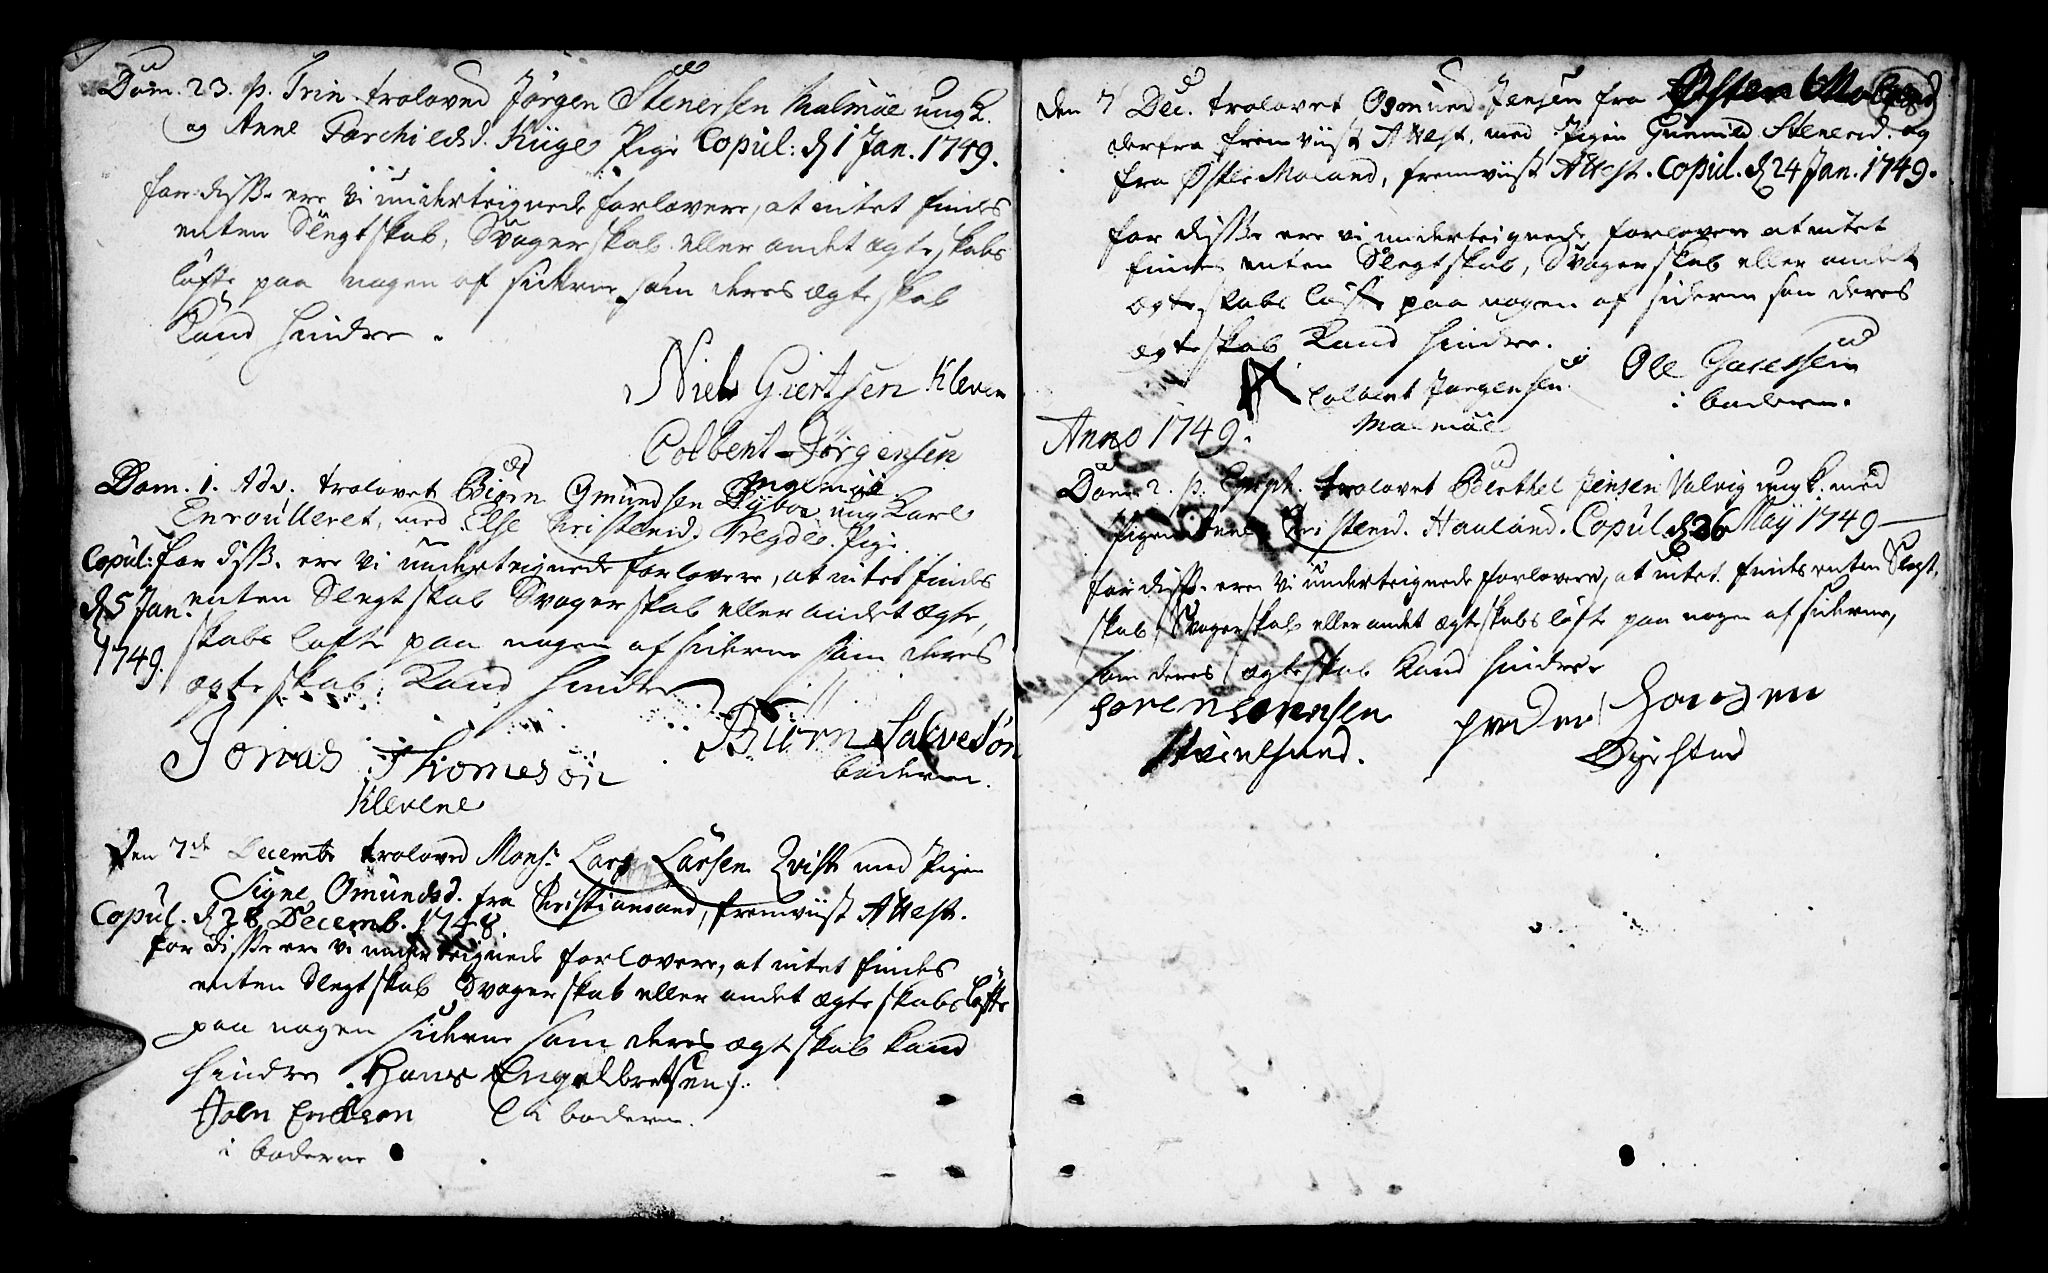 Dom. 23. p. Trin. troloved Jörgen Stenersen Malmöe ung K.
og Anne Torchildsd. Küge Pige Copul: d. 1 Jan. 1749.
for diße ere vi underteignede forlovere, at intet findes
enten Slegtskab, Svagerskab eller andet ægteskabs
löfte paa nogen af siderne som deres ægteskab
Kand hindre.
Niels Giertsen Kleven
Colbent Jörgensen
Malmöe
Dom. 1. Adv. trolovet Biörn Gmundsen Dyboe ung Karl
Enroulleret, med Else Christensd. Tregde Pige.
Copul: d. 5 Jan. 1749.
for diße ere vi underteignede forlovere, at intet findes
enten Slegtskab Svagerskab eller andet ægte,
skabs löfte paa nogen af siderne som deres
ægteskab Kand hindre
Jonas Thomesön
Klevene
Biörn Salvesön
boderne.
Den 7de Decembr troloved Mons: Lars Larsen Qvist med Pigen
Signe Omundsd. fra Christiansand, fremviist Attest.
Copul. d. 28 Decemb. 1748.
for diße ere vi underteignede forlovere, at intet findes
enten Slegtskab Svagerskab eller andet ægteskabs löfte
paa nogen siderne som deres ægteskab kand
hindre. Hans Engelbretsen
i boderne.
John Erichsen
i boderne
Den 7 Dec. trolovet Osmund Jensen fra Østen Moland
derfra fremviist Attest, med Pigen Gunnild Stenersd. og
fra Øster Moland, fremviist Attest. Copul. d. 24 Jan. 1749.
for diße ere vi underteignede forlovere at intet
findes enten Slegtskab, Svagerskab eller andet
ægteskabs löfte paa nogen af siderne som deres
ægteskab Kand hindre.
Colbent Jörgensen
Malmöe
Ole
i boderne.
Anno 1749.
Dom 2. p. Epiph. trolovet Berthel Jensen Valvig ung K. med
Pigen Anne Christensd. Haaland. Copul d. 26 Maÿ 1749
for diße ere vi underteignede forlovere, at intet findes enten Slegt,
skab, Svagerskab eller andet ægteskabs löfte paa nogen af siderne,
som deres ægteskab Kand hindre
Sören Sörensen
Peder Hansen